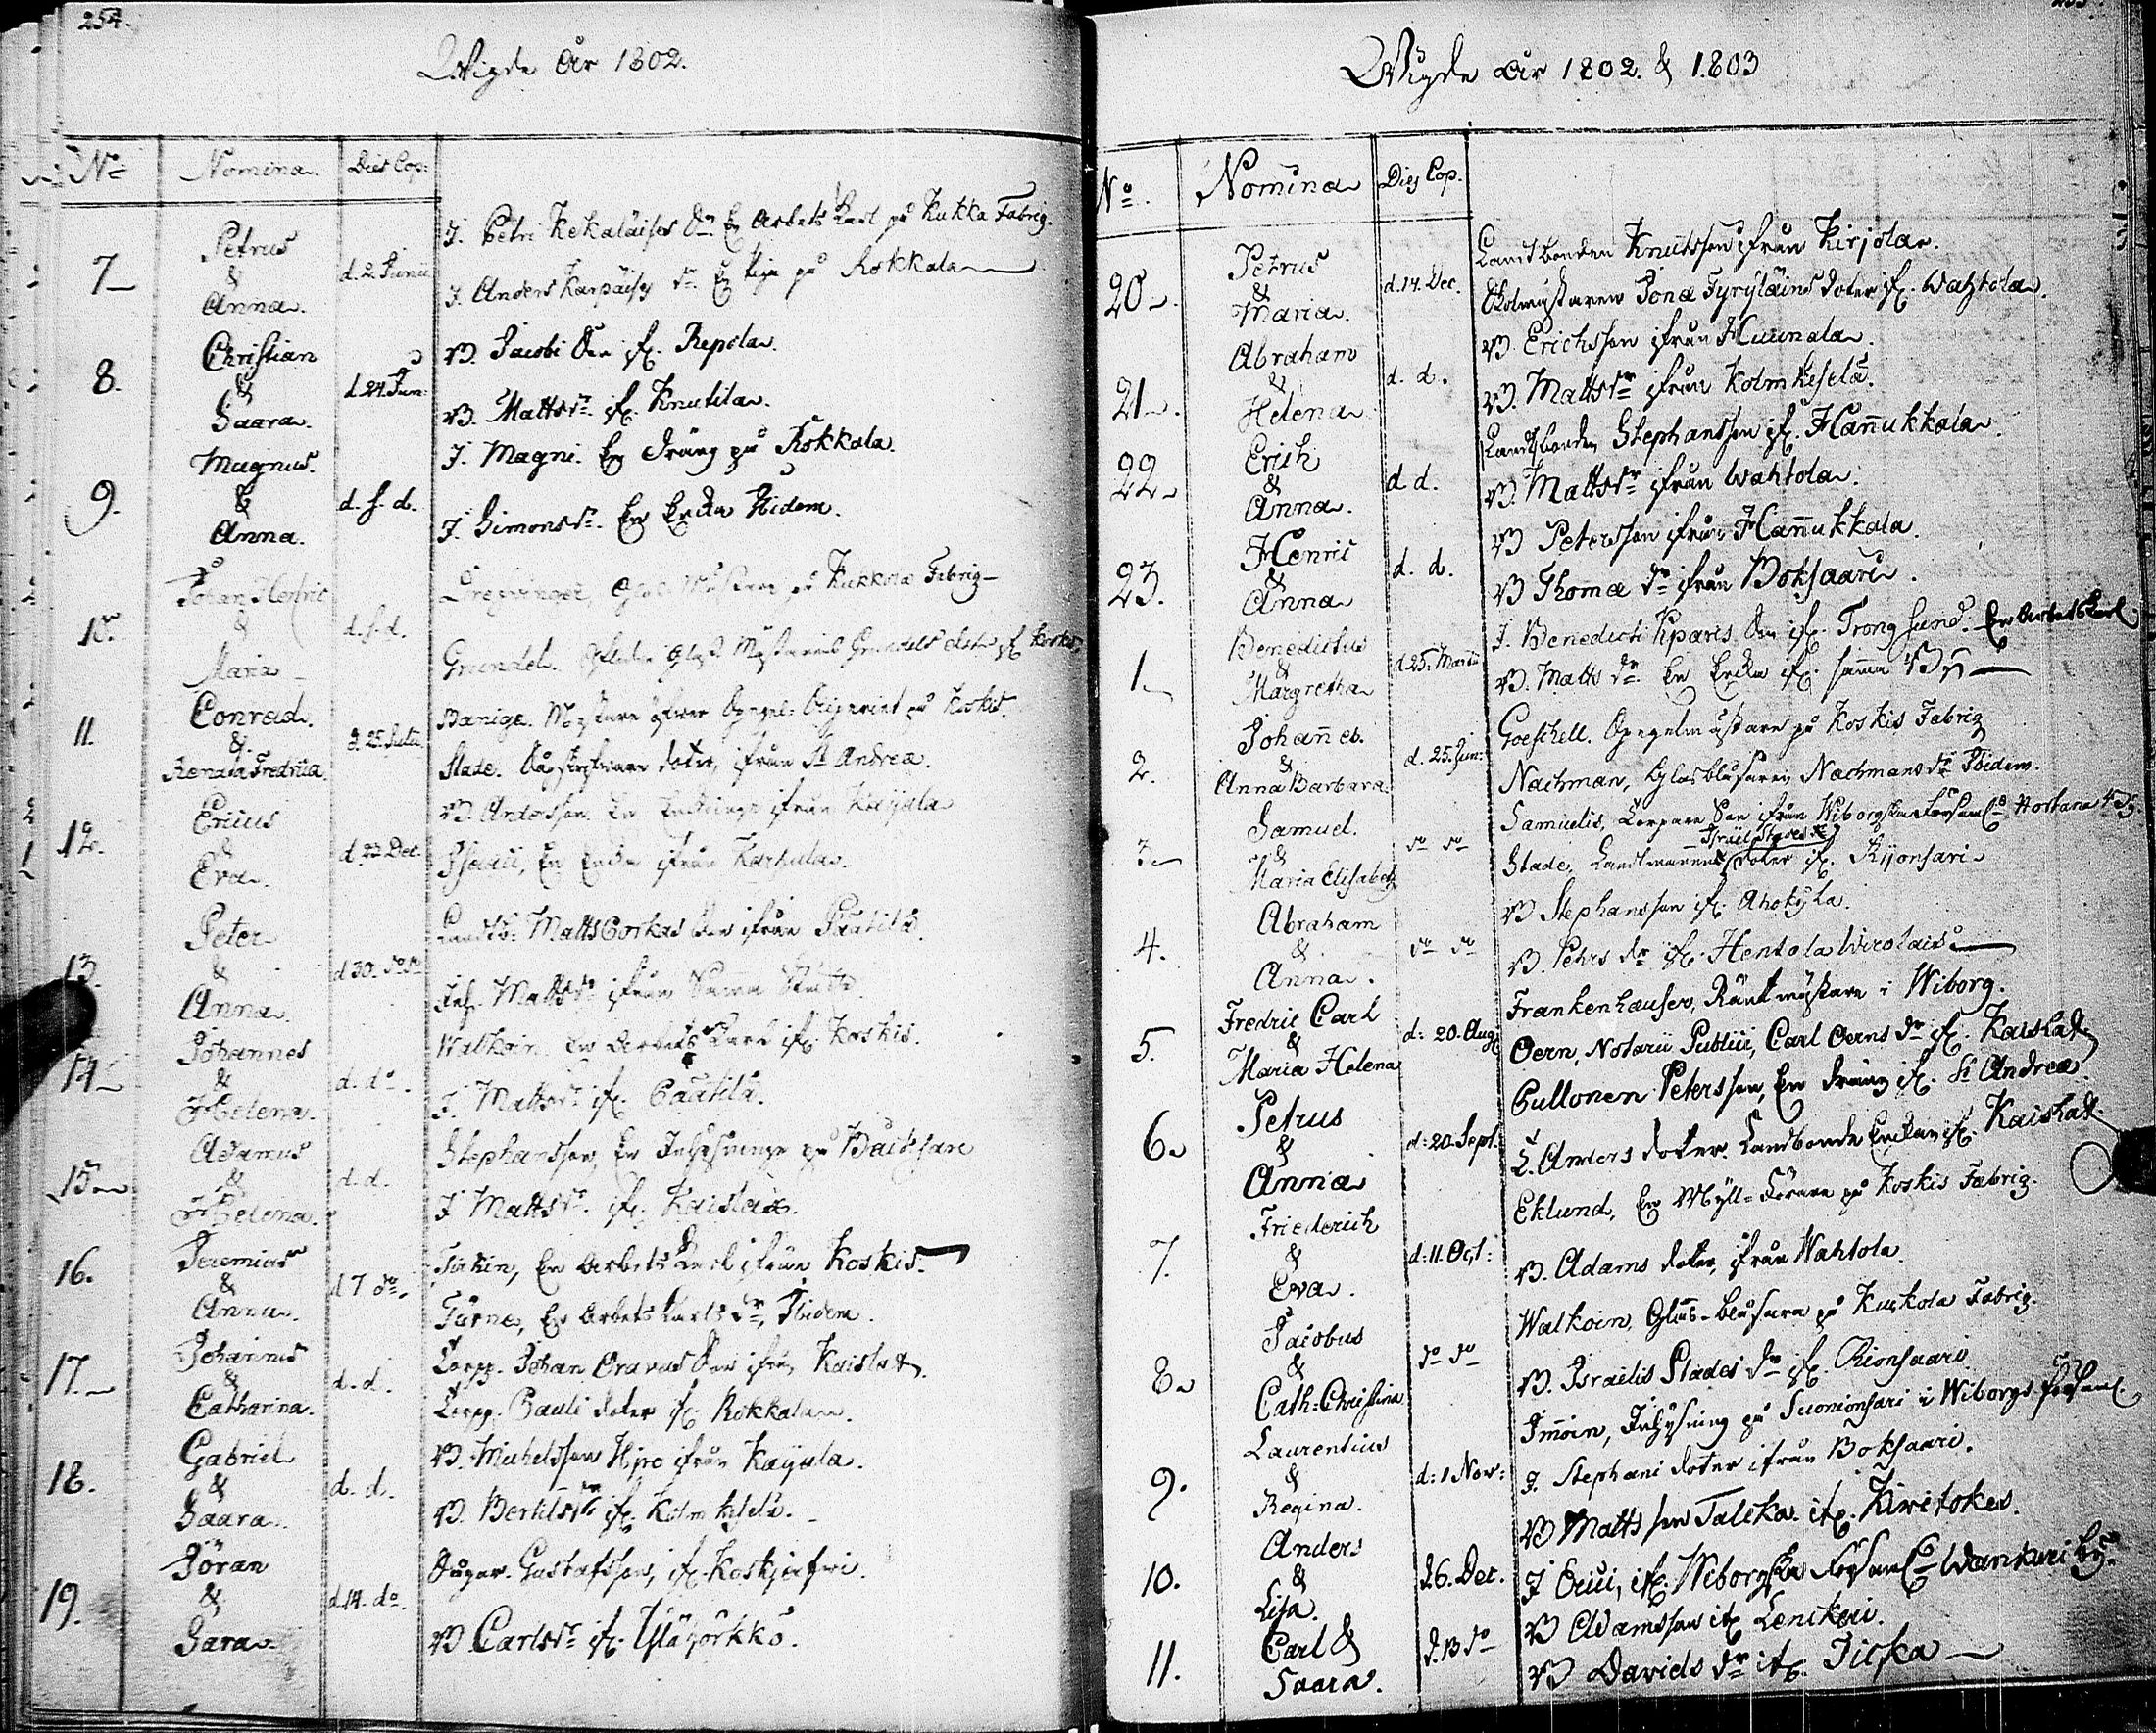 254.
Wigde År 1802.
No Nomina Dies Cop:
7 Petrus & Anna. d. 2 Junii
J. Petri Kekäläises Sn En Arbets Karl på Kukka Fabriq.
J. Anders Karpäises dr En Piga på Rokkala
8. Christian & Saara. d. 24. Jun:
B. Jacobi Son ifr. Repola.
B. Matts dr. ifr. Knutila.
9. Magnus. & Anna. d. s. d.
J. Magni. En dräng på Rokkala.
J. Simons dr. En Enka Ibidem.
10. Johan Henric & Maria d. s. d.
på Kukkola Fabriq
Grundel.
11. Conrad. & Renata Fredrica d. 25. Julii.
Mästare på Koskis.
Slade. doter, ifrån St Andreæ.
12. Ericus & Eva. d. 23 Dec.
B. Andersson En Enkling ifrån Kaijala
Isaaci, En Enka ifrån Karhula.
13. Peter & Anna. d 30. do do
Landtb: Matts Corkas Son ifrån Pautila.
Inh. Matts dr ifrån Samma
14 Johannes & Helena. d. do.
Walkoin. En Arbets Karl ifr. Koskis.
J. Matts dr ifr. Pautila.
15 Adamus & Helena. d. d.
Stephansson, En Inhysinge på
J Matts dr. ifr. Kaislax.
16. Jeremias & Anna. d 7 do.
Tirkin, En Arbets Karl ifrån Koskis.
Türne, En Arbets Karls dr, Ibidem.
17. Johannes & Catharina. d. d.
Torpp. Johan Oravas Son ifrån Kaislax.
Torpp. Pauli doter ifr. Rokkala.
18. Gabriel & Saara. d. d.
B. Michelsson Hijro ifrån Kaijala.
B. Bertils dr ifr. Kolmkeselä.
19. Jöran & Sara. d. 14. do.
Sågar. Gustafsson, ifr. Koskijerfwi.
B Carls dr ifr. Yläyörkkö.
Wigde År 1802. & 1803
No. Nomina Dies Cop.
20. Petrus & Maria. d. 14. Dec.
Landbonden Knutsson ifrån Kirjola.
Jonæ Tyryläins doter ifr. Wahtola.
21. Abraham & Helena d. d.
B. Erichsson ifrån Huunala.
B. Matts dr ifrån Kolmkeselä.
22 Erich & Anna. d d.
Landtbonden Stephansson ifr. Hannukkala.
B. Matts dr ifrån Wahtola.
23. Henric & Anna d. d.
B Petersson ifrån Hannukkala.
B Thomæ dr ifrån Boksaari.
1. Benedictus & Margretha d. 25. Martii
J. Benedicti Kparis Son ifr. Trongsund. En Arbets Karl
B. Matts dr En Enka ifr. samma By
2. Johannes. & Anna Barbara. d. 25. Jun:
Goeschell. Spegelmästare på Koskis Fabriq
Nachman, Glasblåsaren Nachmans dr Ibidem.
3. Samuel. & Maria Elisabeth do do
Samuelis, Torpare Son ifrån Wiborgska Församl. Horhana By.
Israel Slades
Slade, Landtmannens doter ifr. Rijonsari
4. Abraham & Anna. do do
B Stephansson ifr. Ahokyla.
B. Pehrs dr ifr. Hentola Wirolais
5. Fredric Carl & Maria Helena d: 20. Aug:
Frankenhæuser, Räntmästare i Wiborg.
Oern, Notarii Publici, Carl Oerns dr ifr. Kaislax
6. Petrus & Anna d: 20. Sept:
Pullonen Petersson, En dräng ifr. St Andreæ
L. Anders doter. Landbonde Enkan ifr. Kaislax
7. Friederich & Eva. d: 11. Oct:
Eklund, En Myll-Körare på Koskis Fabriq.
B. Adams doter, ifrån Wahtola.
8. Jacobus & Cath: Christina do do
Walkoin, Glas-blåsare på Kuckola Fabriq.
B. Israelis Slades dr ifr. Rionsaari.
9. Laurentius & Regina. d: 1 Nov:
Immoin, Inhysing på Suonionsari i Wiborgs Församl.
J. Stephani doter ifrån Boksaari.
10. Anders & Lisa. d. 6. Dec.
B Mattsson Talcka. ifr. Kiwitokes.
J Erici, ifr. Wiborgska Församl. Wankuri by.
11. Carl & Saara. d. 13 do
B Adamsson ifr. Lenikeri.
B Davids dr ifr. Iiska